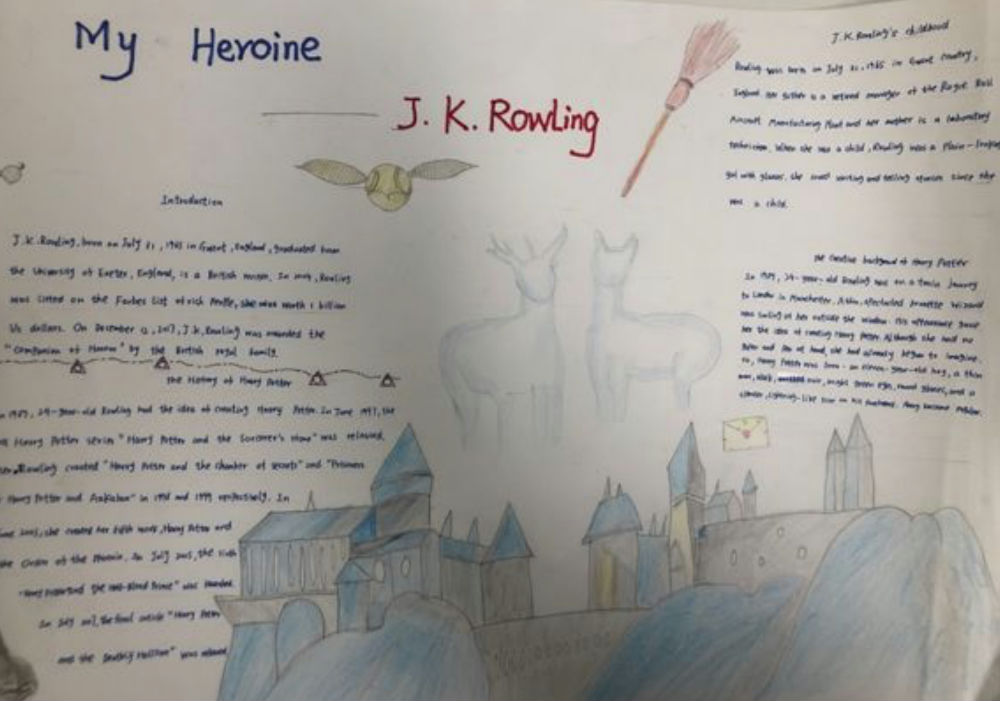 My Heroine
J. K. Rowling
Introduction
J.K. Rowling, born on July 31, 1965 in Gwent, England, graduated from
the University of Exeter, England, is a British In Rowling
was listed on the Forbes list of rich she was worth 1 billion
Us dollars. On December 12, 2017, J.K. Rowling was awarded the
"Companion of Honour" by the British royal family.
The History of Harry Potter
1989, 24-year-old Rowling had the idea of creating Harry Potter. In June 1997, the
Harry Potter series "Harry Potter and the Sorcerer's" was released.
Rowling created "Harry Potter and the chamber of secrets" and "Prisoner
Harry Potter and Azkaban" in 1998 and 1999 In
she created her fifth work, Harry Potter and
the Order of the In July the sixth
Blood Prince" was
In July the final "Harry Potter
and the was
J.K. Rowling's childhood
Rowling was born in July 31, 1965 in Gwent country,
England. Her father is a retired manager of the Rogue Roll
Aircraft Manufacturing Plant and her mother is a laboratory
technician. When she was a child, Rowling was a Plain-looking
girl with glasses. She loved writing and telling stories since she
was a child.
The Creative background of Harry Potter
In 1989, 24-year-old Rowling was on a train
to London in Manchester. A thin, Wizard
was at her outside the window. This gave
her the idea of creating Harry Potter. Although she had no
and at hand, she had already began to imagine.
So, Harry Potter was born - an eleven-year-old boy, a thin
green eyes, round glasses, and a
lightning-like scar on his Harry became